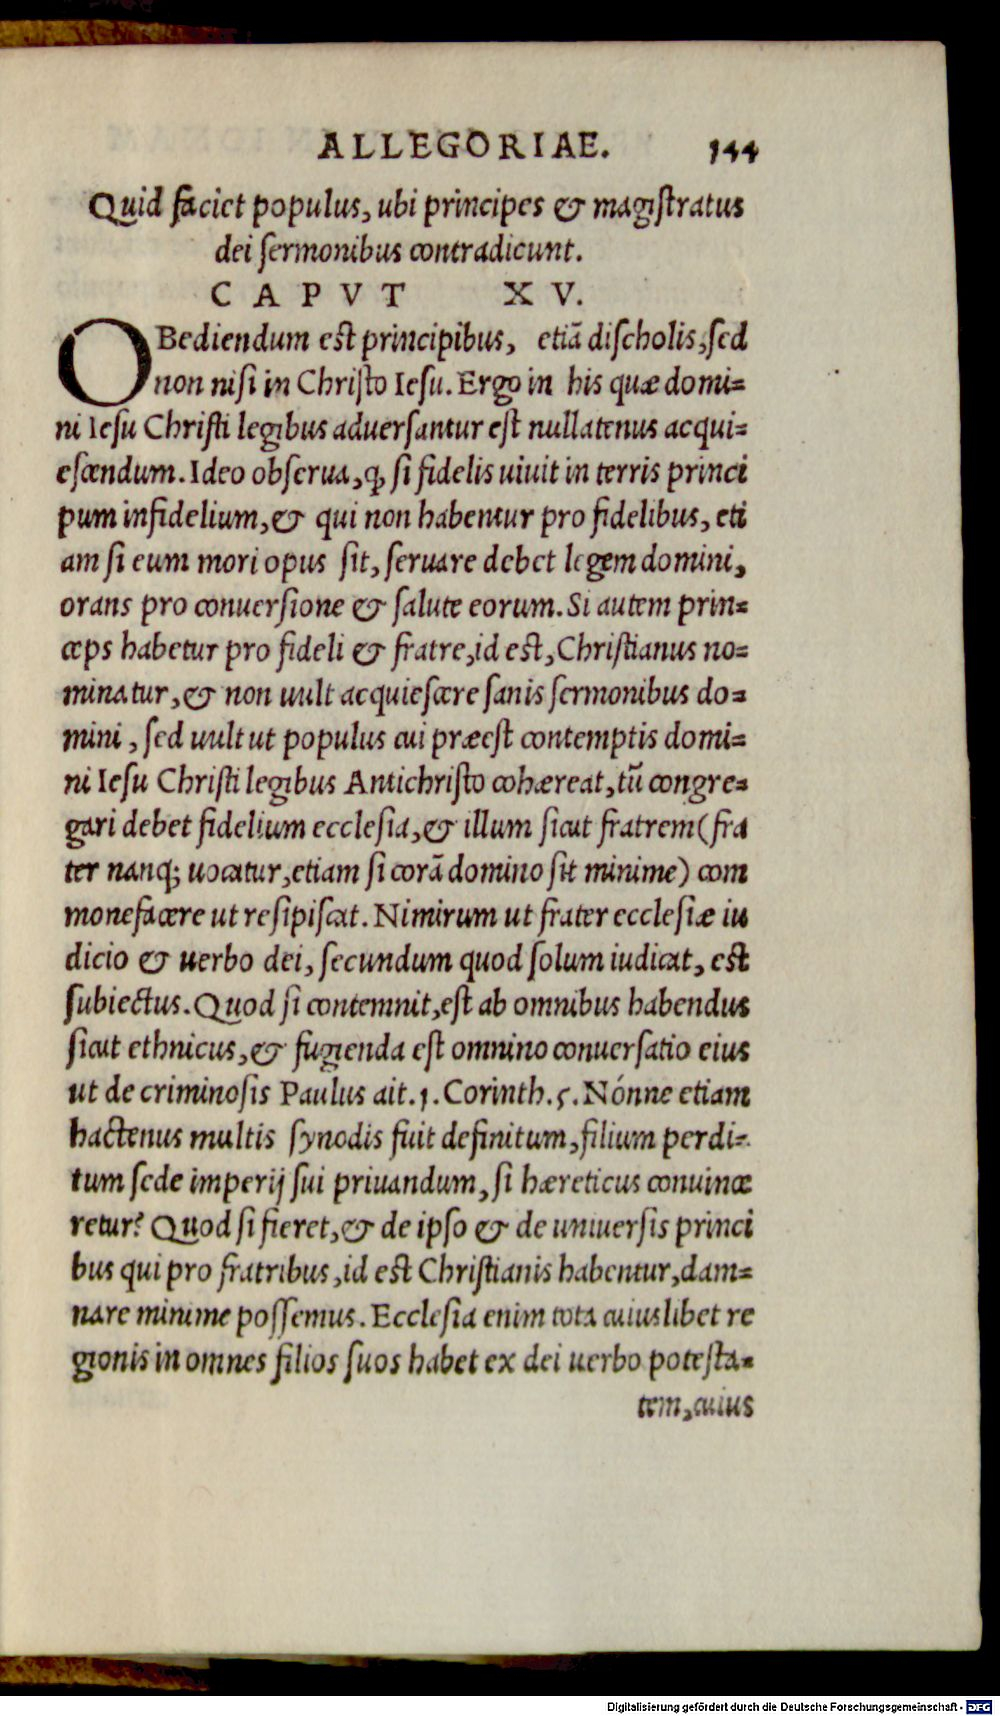 ALLEGORIAE. 144
Quid faciet populus, ubi principes & magistratus
dei sermonibus contradicunt.
CAPVT XV.
OBediendum est principibus, etiā discholis, sed
non nisi in Christo Iesu. Ergo in his quæ domi=
ni Iesu Christi legibus aduersantur est nullatenus acqui=
escendum. Ideo obserua, ꝙ si fidelis uiuit in terris princi
pum infidelium, & qui non habentur pro fidelibus, eti
am si eum mori opus sit, seruare debet legem domini,
orans pro conuersione & salute eorum. Si autem prin=
ceps habetur pro fideli & fratre, id est, Christianus no=
minatur, & non uult acquiescere sanis sermonibus do=
mini, sed uult ut populus cui præest contemptis domi=
ni Iesu Christi legibus Antichristo cohæreat, tū congre=
gari debet fidelium ecclesia, & illum sicut fratrem (fra
ter nanq; uocatur, etiam si corā domino sit minime) com
monefacere ut resipiscat. Nimirum ut frater ecclesiæ iu
dicio & uerbo dei, secundum quod solum iudicat, est
subiectus. Quod si contemnit, est ab omnibus habendus
sicut ethnicus, & fugienda est omnino conuersatio eius
ut de criminosis Paulus ait. 1. Corinth. 5. Nónne etiam
hactenus multis synodis fuit definitum, filium perdi=
tum sede imperij sui priuandum, si hæreticus conuince
retur? Quod si fieret, & de ipso & de uniuersis princi
bus qui pro fratribus, id est Christianis habentur, dam=
nare minime possemus. Ecclesia enim tota cuiuslibet re
gionis in omnes filios suos habet ex dei uerbo potesta=
tem, cuius
Digitalisierung gefördert durch die Deutsche Forschungsgemeinschaft - DFG